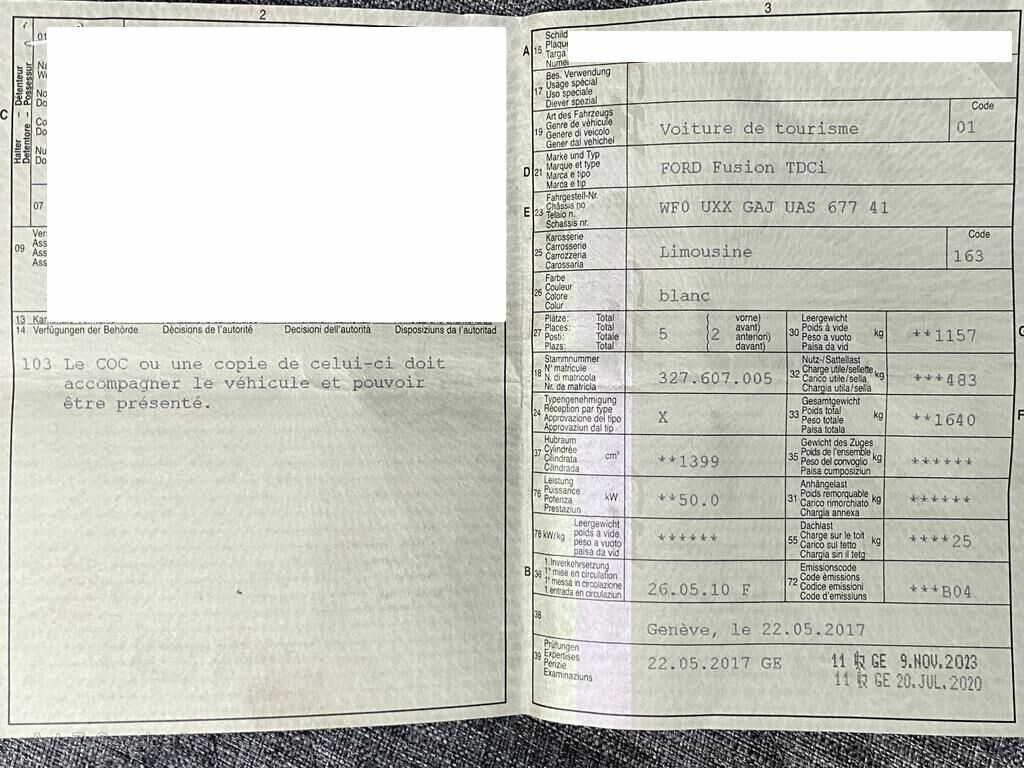 2
01
Halter – Détenteur
Detentore – Possessur
C
Na
W
No
Do
Co
Do
Nu
Do
07
09
Ver
Ass
Ass
Ass
13
14 Verfügungen der Behörde Décisions de l'autorité Decisioni dell'autorità Disposiziuns da l'autoritad
103 Le COC ou une copie de celui-ci doit
accompagner le véhicule et pouvoir
être présenté.
3
A 15 Schild
Plaque
Targa
Numer
17 Bes. Verwendung
Usage spécial
Uso speciale
Diever spezial
19 Art des Fahrzeugs
Genre de véhicule
Genere di veicolo
Gener dal vehichel
Voiture de tourisme
Code
01
D 21 Marke und Typ
Marque et type
Marca e tipo
Marca e tip
FORD Fusion TDCi
E 23 Fahrgestell-Nr.
Châssis no
Telaio n.
Schassis nr.
WF0 UXX GAJ UAS 677 41
25 Karosserie
Carrosserie
Carrozzeria
Carossaria
Limousine
Code
163
26 Farbe
Couleur
Colore
Colur
blanc
27 Plätze: Total
Places: Total
Posti: Totale
Plazs: Total
5 (2 vorne)
avant)
anteriori)
davant)
30 Leergewicht
Poids à vide
Peso a vuoto
Paisa da vid
kg
**1157
G
18 Stammnummer
N° matricule
N. di matricola
Nr. da matricla
327.607.005
32 Nutz-/Sattellast
Charge utile/sellette
Carico utile/sella
Chargia utila/sella
kg
***483
24 Typengenehmigung
Réception par type
Approvazione del tipo
Approvaziun dal tip
X
33 Gesamtgewicht
Poids total
Peso totale
Paisa totala
kg
**1640
F
37 Hubraum
Cylindrée
Cilindrata
Cilindrada
cm³
**1399
35 Gewicht des Zuges
Poids de l'ensemble
Peso del convoglio
Paisa cumposiziun
kg
******
76 Leistung
Puissance
Potenza
Prestaziun
kW
**50.0
31 Anhängelast
Poids remorquable
Carico rimorchiato
Chargia annexa
kg
******
78 kW/kg Leergewicht
poids à vide
peso a vuoto
paisa da vid
******
55 Dachlast
Charge sur le toit
Carico sul tetto
Chargia sin il tetg
kg
****25
B 36 1. Inverkehrsetzung
1re mise en circulation
1a messa in circolazione
1. entrada en circulaziun
26.05.10 F
72 Emissionscode
Code émissions
Codice emissioni
Code d'emissiuns
***B04
38
Genève, le 22.05.2017
39 Prüfungen
Expertises
Perizie
Examinaziuns
22.05.2017 GE
11 GE 9.NOV.2023
11 GE 20.JUL.2020